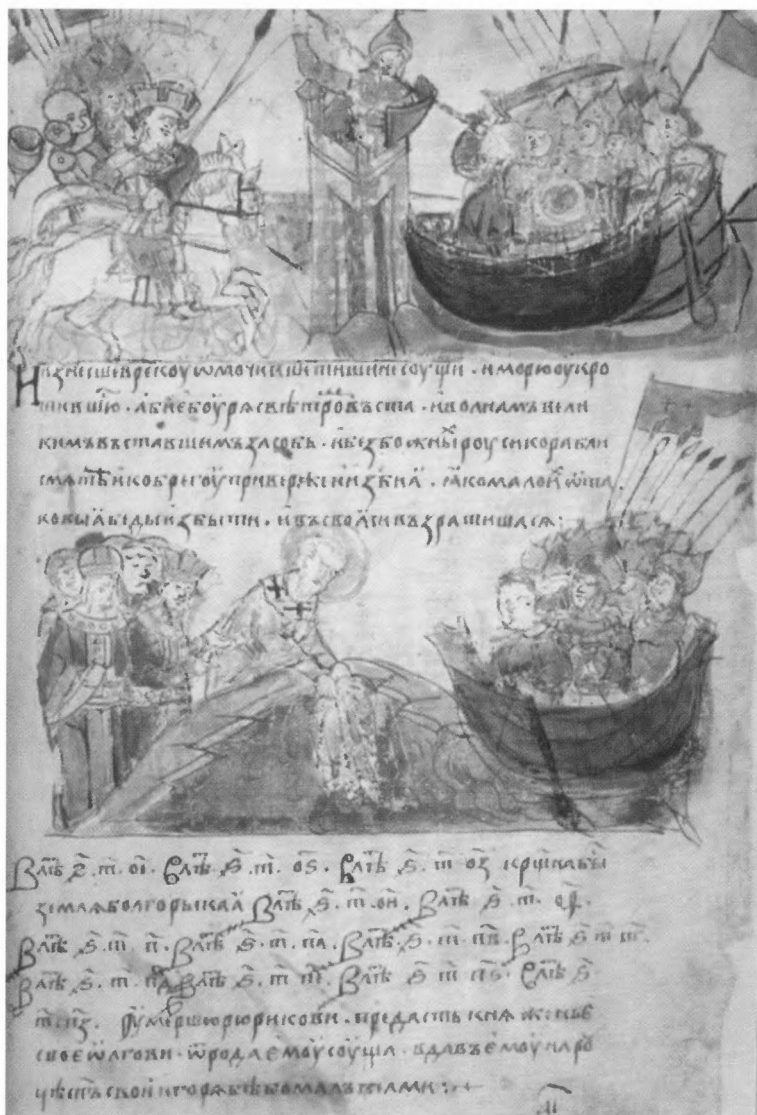 Изнесше в рекоу ѡмочивше тишине соущи · и морю оукро
тившю · абие боуря с вѣтром въста · и волнамъ вели
кимъ въставшимъ засобь · и безбожных роуси корабли
смяте и к берегоу привержеи изби а · яко мало их ѿ та
ковыа беды избыти · и въ своаси възратишася :
В лѣт ҂ѕ · т҃ · ое · В лѣт ҂ѕ · т҃ · оѕ · В лѣт ҂ѕ · т҃ оз крщна бы
земля болгорьскаа В лѣт ҂ѕ · т҃ · ои · В лѣт ҂ѕ · т҃ · оѳ ·
В лѣт ҂ѕ · т҃ · п҃ · В лѣт ҂ѕ · т҃ · па · В лѣт ҂ѕ · т҃ · пв · В лѣт ҂ѕ т҃ пг ·
В лѣт ҂ѕ · т҃ · пд В лѣт ҂ѕ · т҃ пе · В лѣт ҂ѕ т҃ пѕ · В лѣт ҂ѕ
т҃ · пз · Оумершю рюрикови · предасть княженье
свое ѡлгови · ѿ рода емоу соуща · вдавъ емоу на роу
цѣ снъ свои игоря бѣ бо малъ велми :